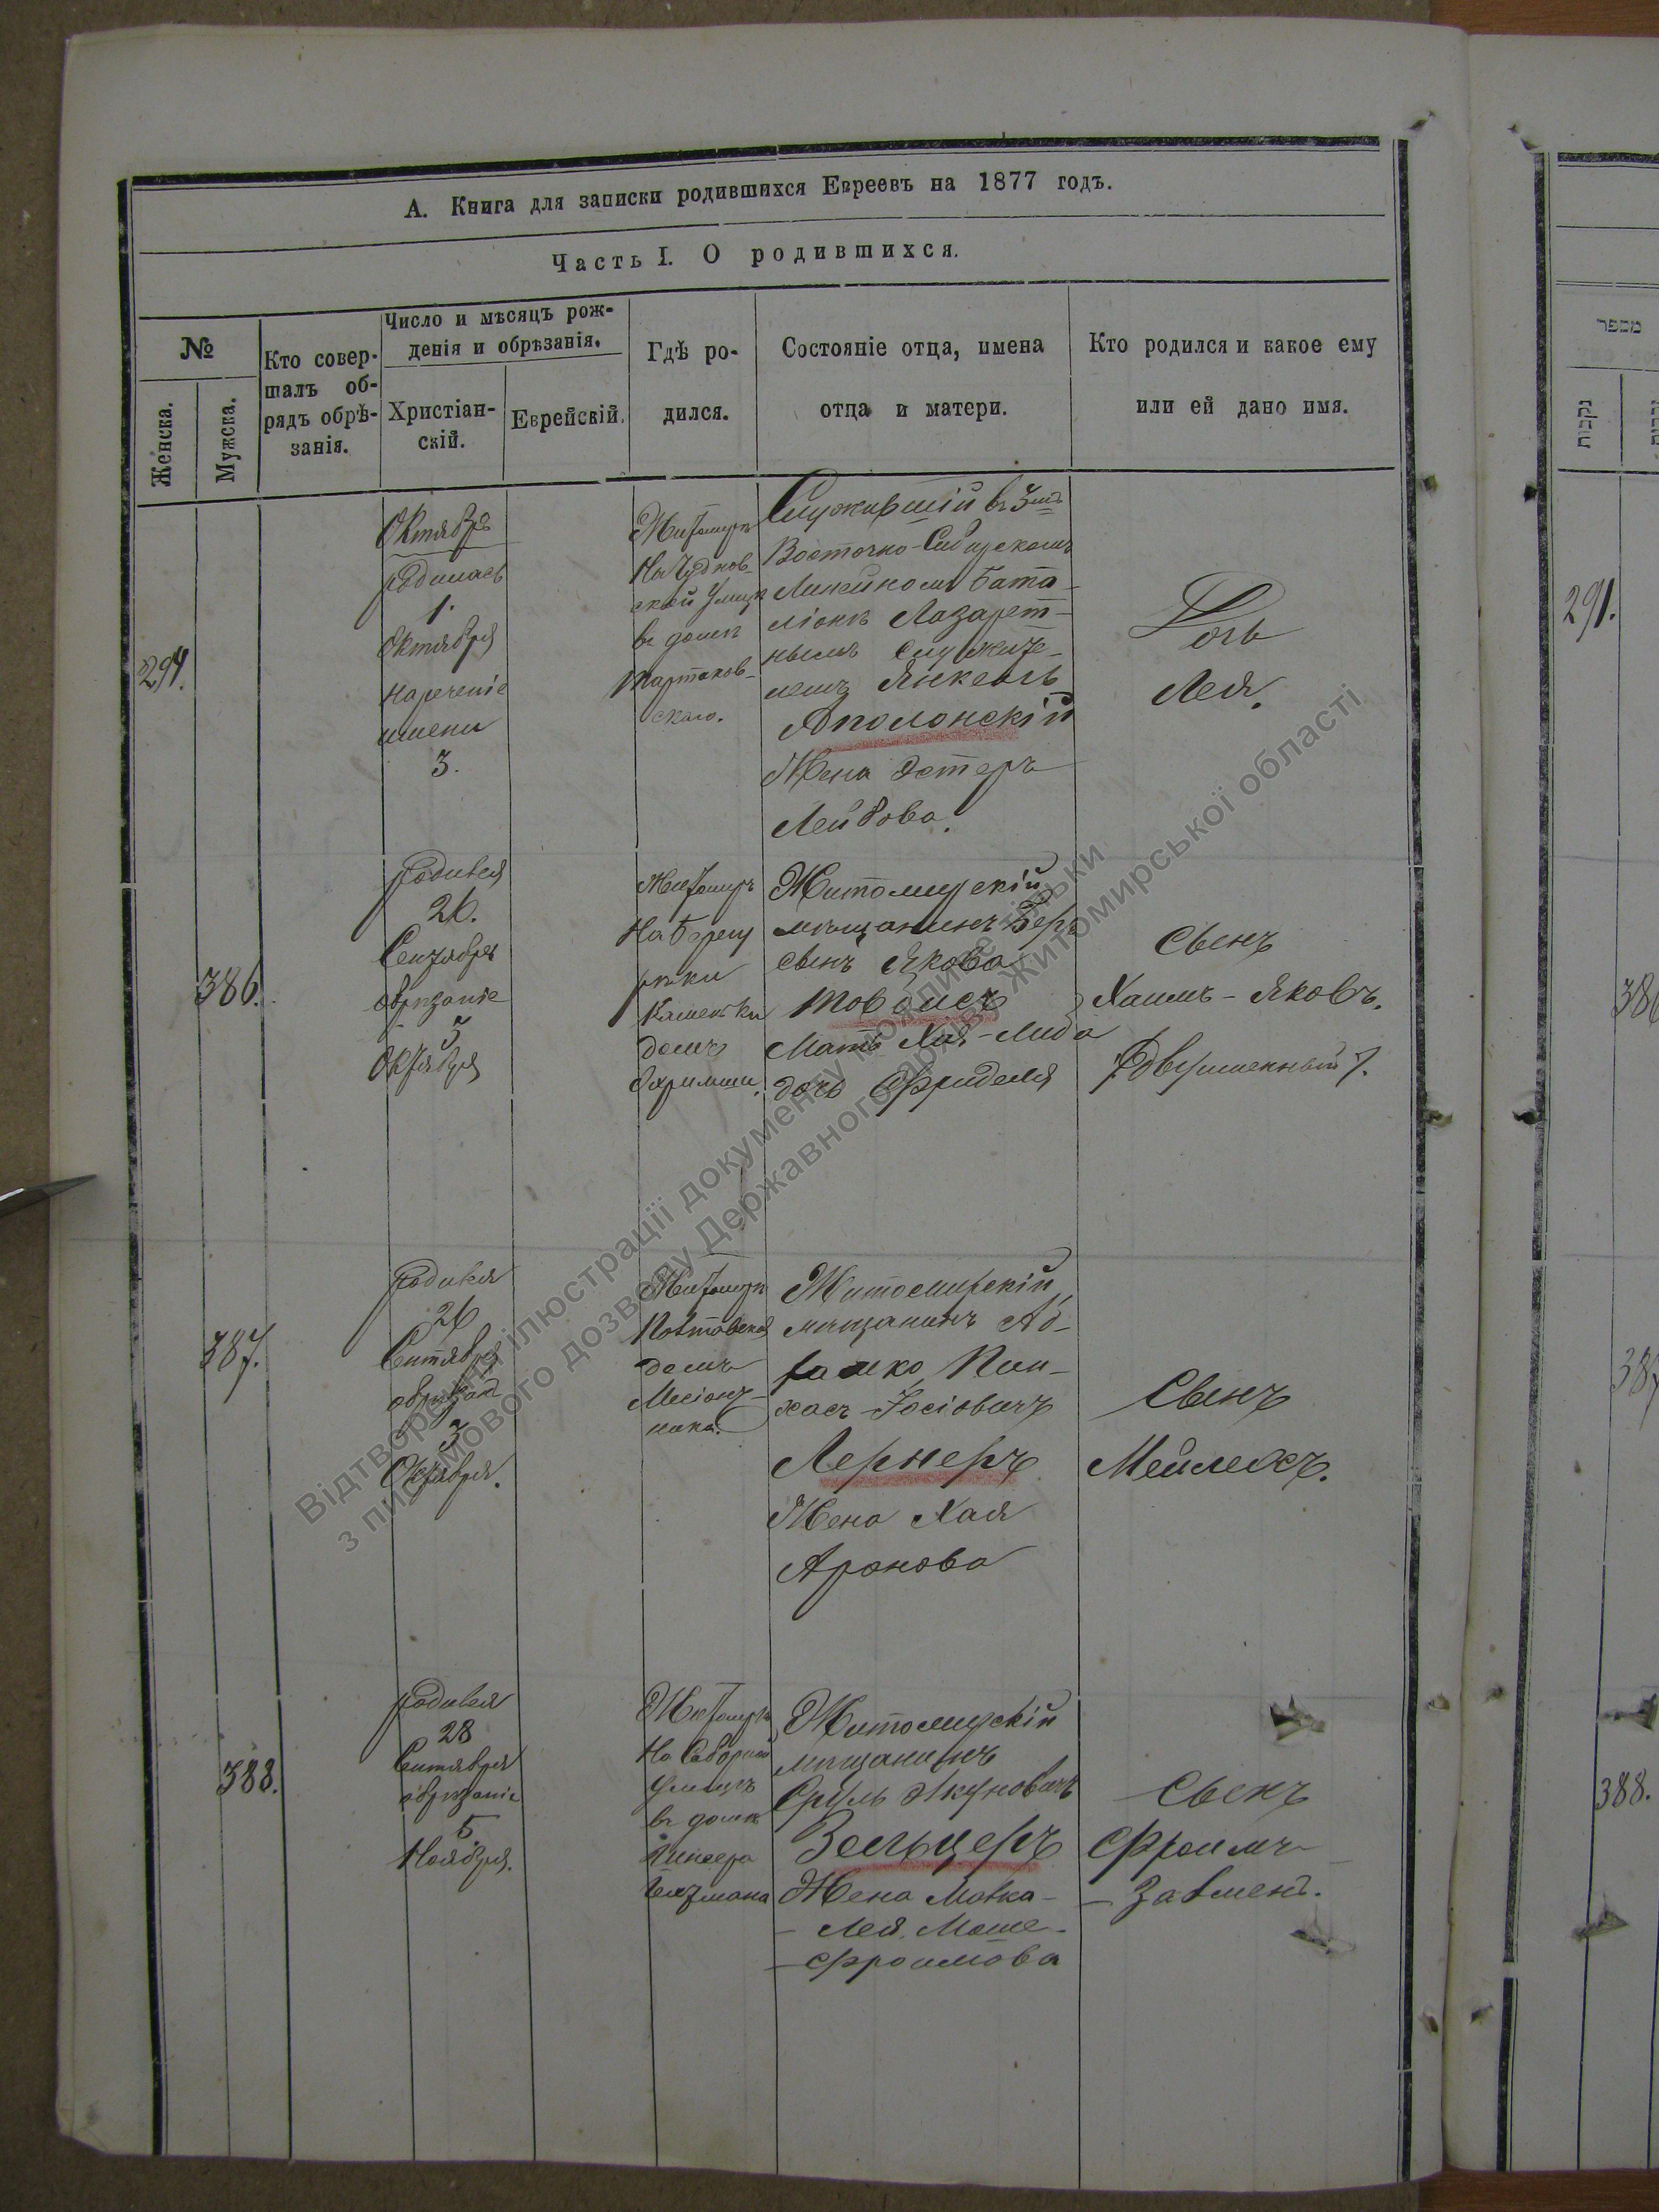 А. Книга для записки родившихся Евреевъ на 1877 годъ.
Часть I. О родившихся.
№
Женска.
Мужска.
Кто совер-
шалъ об-
рядъ обрѣ-
занія.
Число и мѣсяцъ рож-
денія и обрѣзанія.
Христіан-
скій.
Еврейскій.
Гдѣ ро-
дился.
Состояніе отца, имена
отца и матери.
Кто родился и какое ему
или ей дано имя.
מספר
נקבות
291.
Октябрь
родилась
1.
Октября
нареченіе
имени
3.
Житомиръ
На Чуднов-
ской улицѣ
въ домѣ
скаго.
Служившій въ 3мъ
Восточно-Сибирскомъ
Линейномъ Бата-
ліонѣ Лазарет-
нымъ служите-
лемъ Янкель
Аполонскій
Жена Эстеръ
Лейбова.
Дочь
Лея.
291.
386.
родился
26.
Сентября
обрѣзаніе
3
Октября
Житомиръ
На берегу
рѣки
Каменки
домъ
Житомирскій
мѣщанинъ Беръ
сынъ Якова
Товбисъ
Мать Хая-Люба
дочь Фриделя
Сынъ
Хаимъ-Яковъ.
/:двуименный:/.
386
387.
родился
26
Сентября
обрѣзан
3
Октября.
Житомиръ
домъ
Житомирскій
мѣщанинъ Аб-
рамко Пин-
хасъ-Іосіовичъ
Лернеръ
Жена Хая
Аронова
Сынъ
Мейлехъ.
387
388.
родился
28
Сентября
обрѣзаніе
5
Ноября.
Житомиръ
На Соборной
улицѣ
въ домѣ
Житомирскій
мѣщанинъ
Сруль Янкуновичъ
Зельцеръ
Жена Мовка-
-Лея Моше-
-Фроимова
Сынъ
Фроимъ-
-Завмень.
388.
Відтворення ілюстрації документу можливе тільки
з письмового дозволу Державного архіву Житомирської області